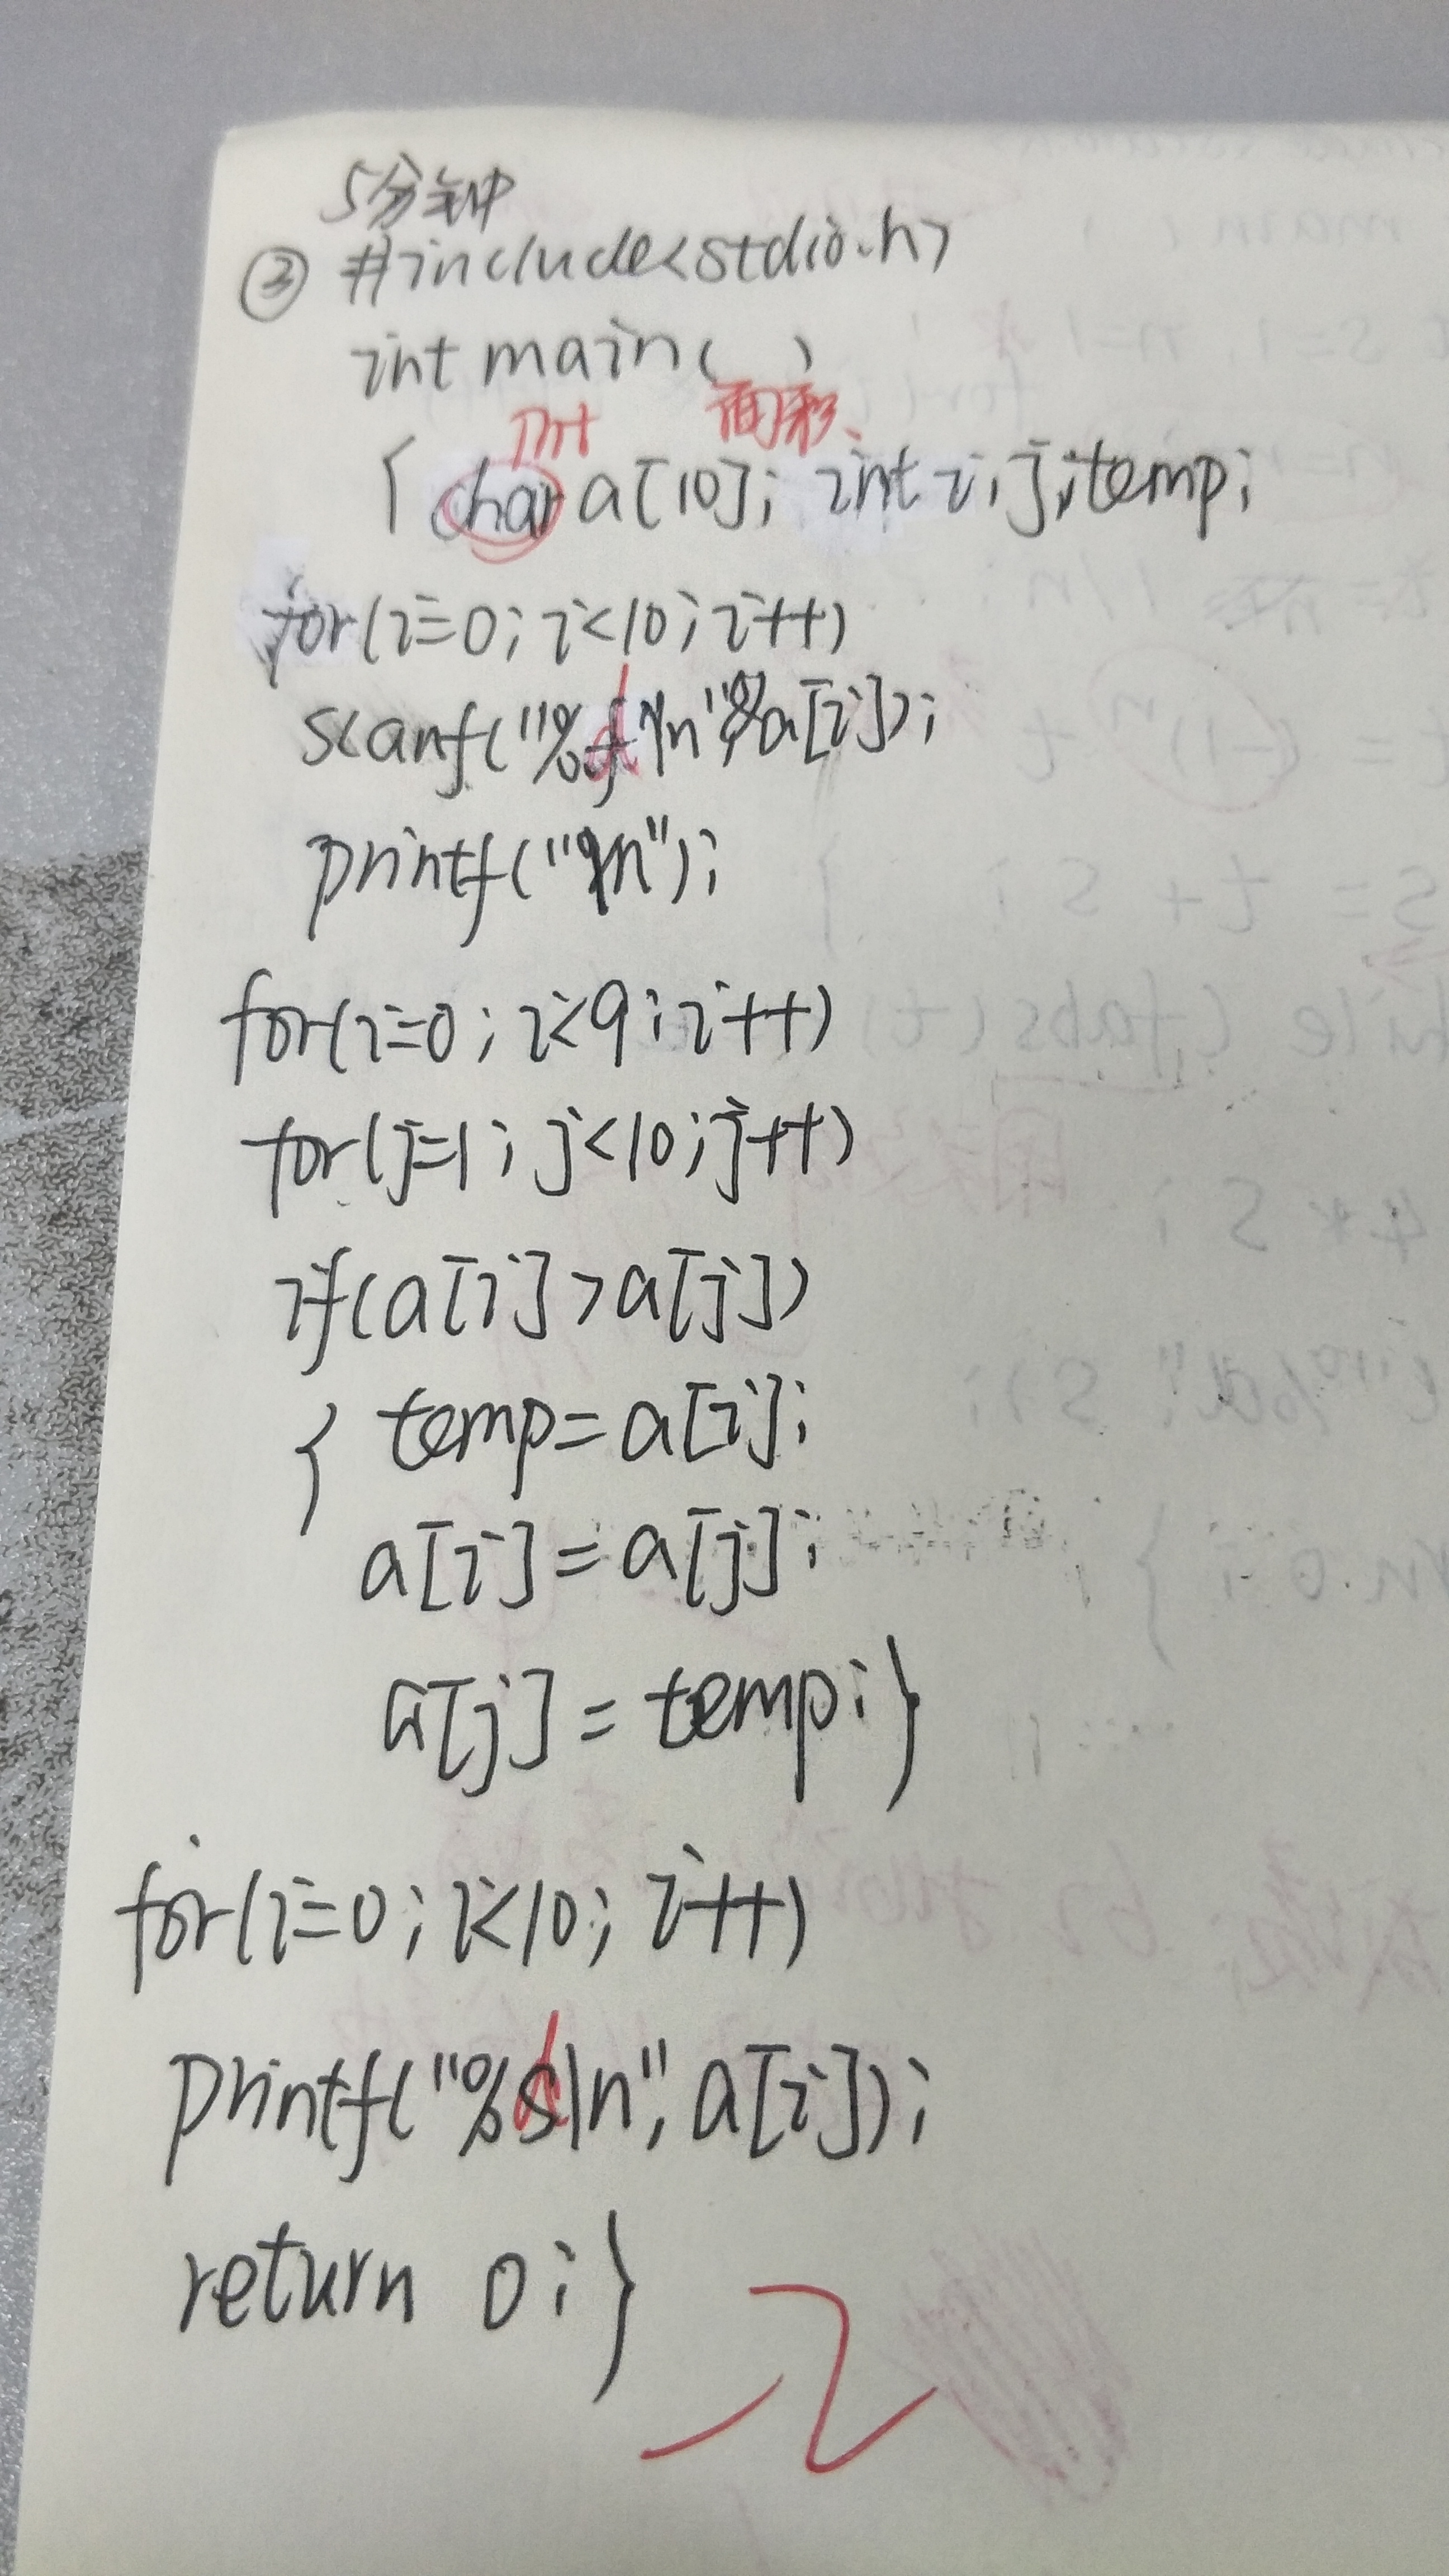 5分钟
③ #include<stdio.h>
int main( )
int
{ char a[10]; int i,j,temp;
for(i=0;i<10;i++)
scanf("%d\n",&a[i]);
printf("\n");
for(i=0;i<9;i++)
for(j=1;j<10;j++)
if(a[i]>a[j])
{ temp=a[i];
a[i]=a[j];
a[j]=temp;}
for(i=0;i<10;i++)
printf("%d\n",a[i]);
return 0;}